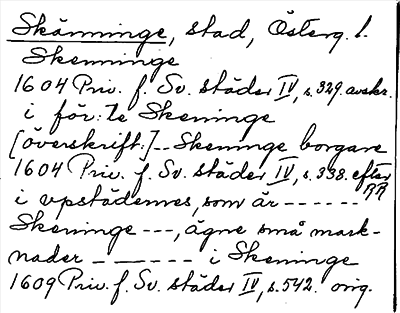 Skänninge, stad, Österg. l.
Skenninge
1604 Priv. f. Sv. städer IV, s. 329. avskr.
i för:te Skeninge
[överskrift:] -- Skeninge borgare
1604 Priv. f. Sv. städer IV, s. 338. efter RR
i vpstädernes, som är ------
Skeninge ---, ägne små mark-
nader ------ i Skeninge
1609 Priv. f. Sv. städer IV, s. 542. orig.